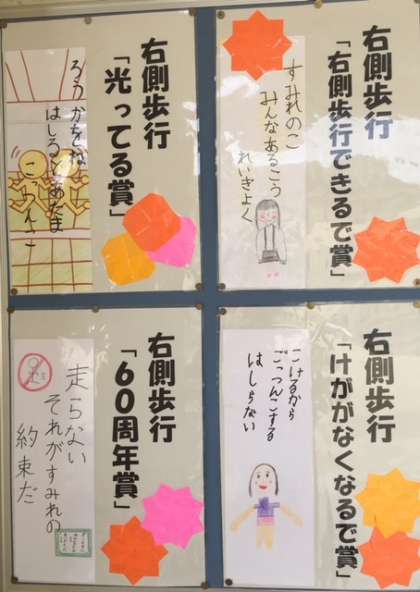 右側歩行
「右側歩行できるで賞」
すみれのこ
みんなあるこう
れいぎよく
右側歩行
「光ってる賞」
ろうかをね
はしるとあたま
こっつんこ
右側歩行
「けががなくなるで賞」
こけるから
ごっつんこする
はしらない
右側歩行
「60周年賞」
走らない
それがすみれの
約束だ